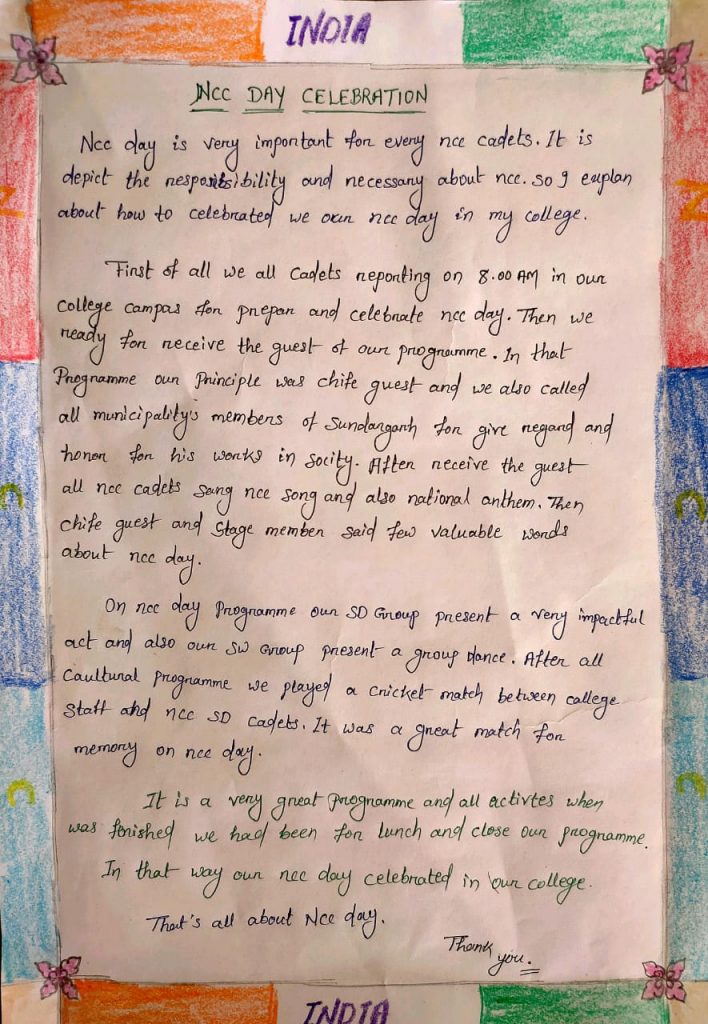 INDIA
NCC DAY CELEBRATION
Ncc day is very important for every ncc cadets. It is
depict the responsibility and necessary about ncc. so I explan
about how to celebrated we our ncc day in my college.
First of all we all cadets reporting on 8.00 AM in our
college campas for prepar and celebrate ncc day. Then we
ready for receive the guest of our programme. In that
Programme our Principle was chife guest and we also called
all municipality's members of Sundargarh for give regard and
honor for his works in socity. After receive the guest
all ncc cadets sang ncc song and also national anthem. Then
chife guest and stage member said few valuable words
about ncc day.
On ncc day Programme our SD Group present a very impactful
act and also our SW Group present a group dance. After all
Caultural programme we played a cricket match between college
staff and ncc SD cadets. It was a great match for
memory on ncc day.
It is a very great programme and all activtes when
was finished we had been for lunch and close our programme.
In that way our ncc day celebrated in our college.
That's all about Ncc day.
Thank
you.
N
N
C
C
C
C
INDIA